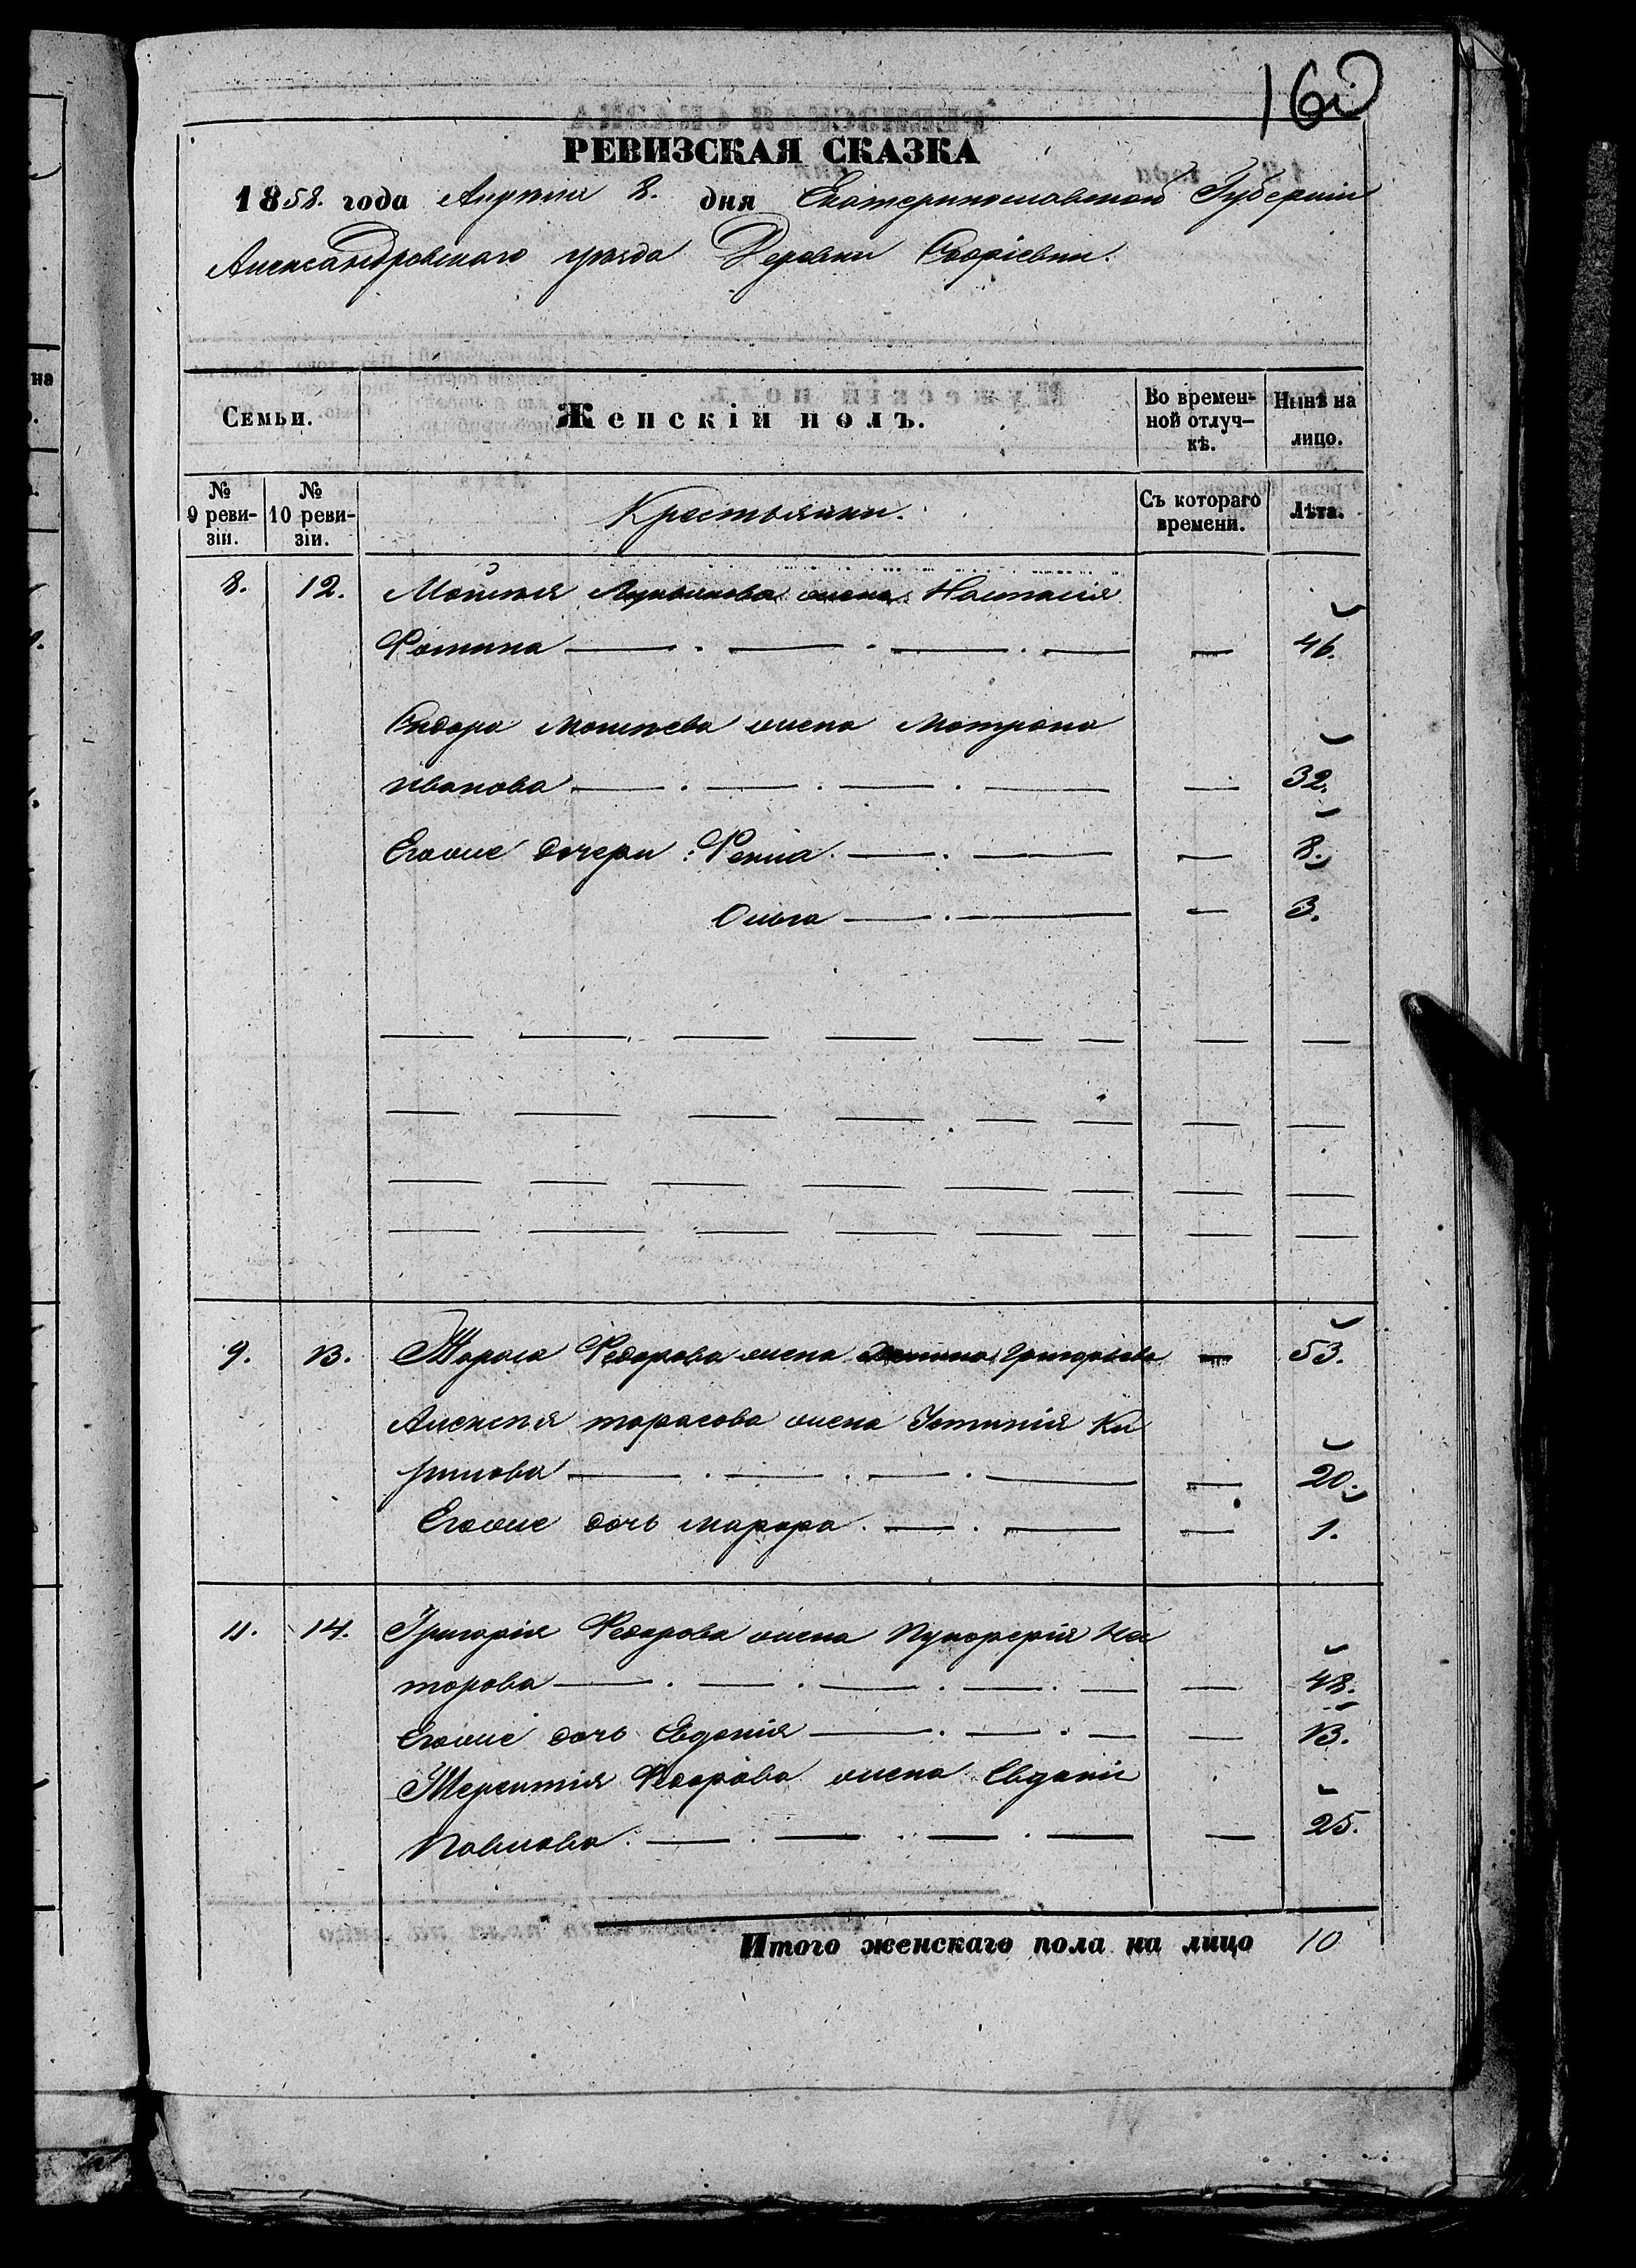 160
РЕВИЗСКАЯ СКАЗКА
1858. года Апрѣля 8. дня Екатеринославской Губерніи
Александровскаго уѣзда Деревни Софіевки.
Семьи. Женскій полъ. Во временной отлучкѣ. Нынѣ на лицо.
№ 9 ревизіи. № 10 ревизіи. Крестьянки. Съ котораго времени. Лѣта.
8. 12. Моисея Лукьянова жена Настасія
Фомина — 46.
Сидора Моисѣева жена Матрона
Иванова — 32.
Егоже дочери: Фекла — 8.
Ольга — 3.
9. 13. Тараса Федорова жена Григорьева — 53.
Алексѣя Тарасова жена Устинія Ки
рилова — 20.
Егоже дочь Марфа — 1.
11. 14. Григорія Федорова жена
— 48.
Егоже дочь Евдокія — 13.
Терентія Федорова жена Евдокія
Павлова — 25.
Итого женскаго пола на лицо 10